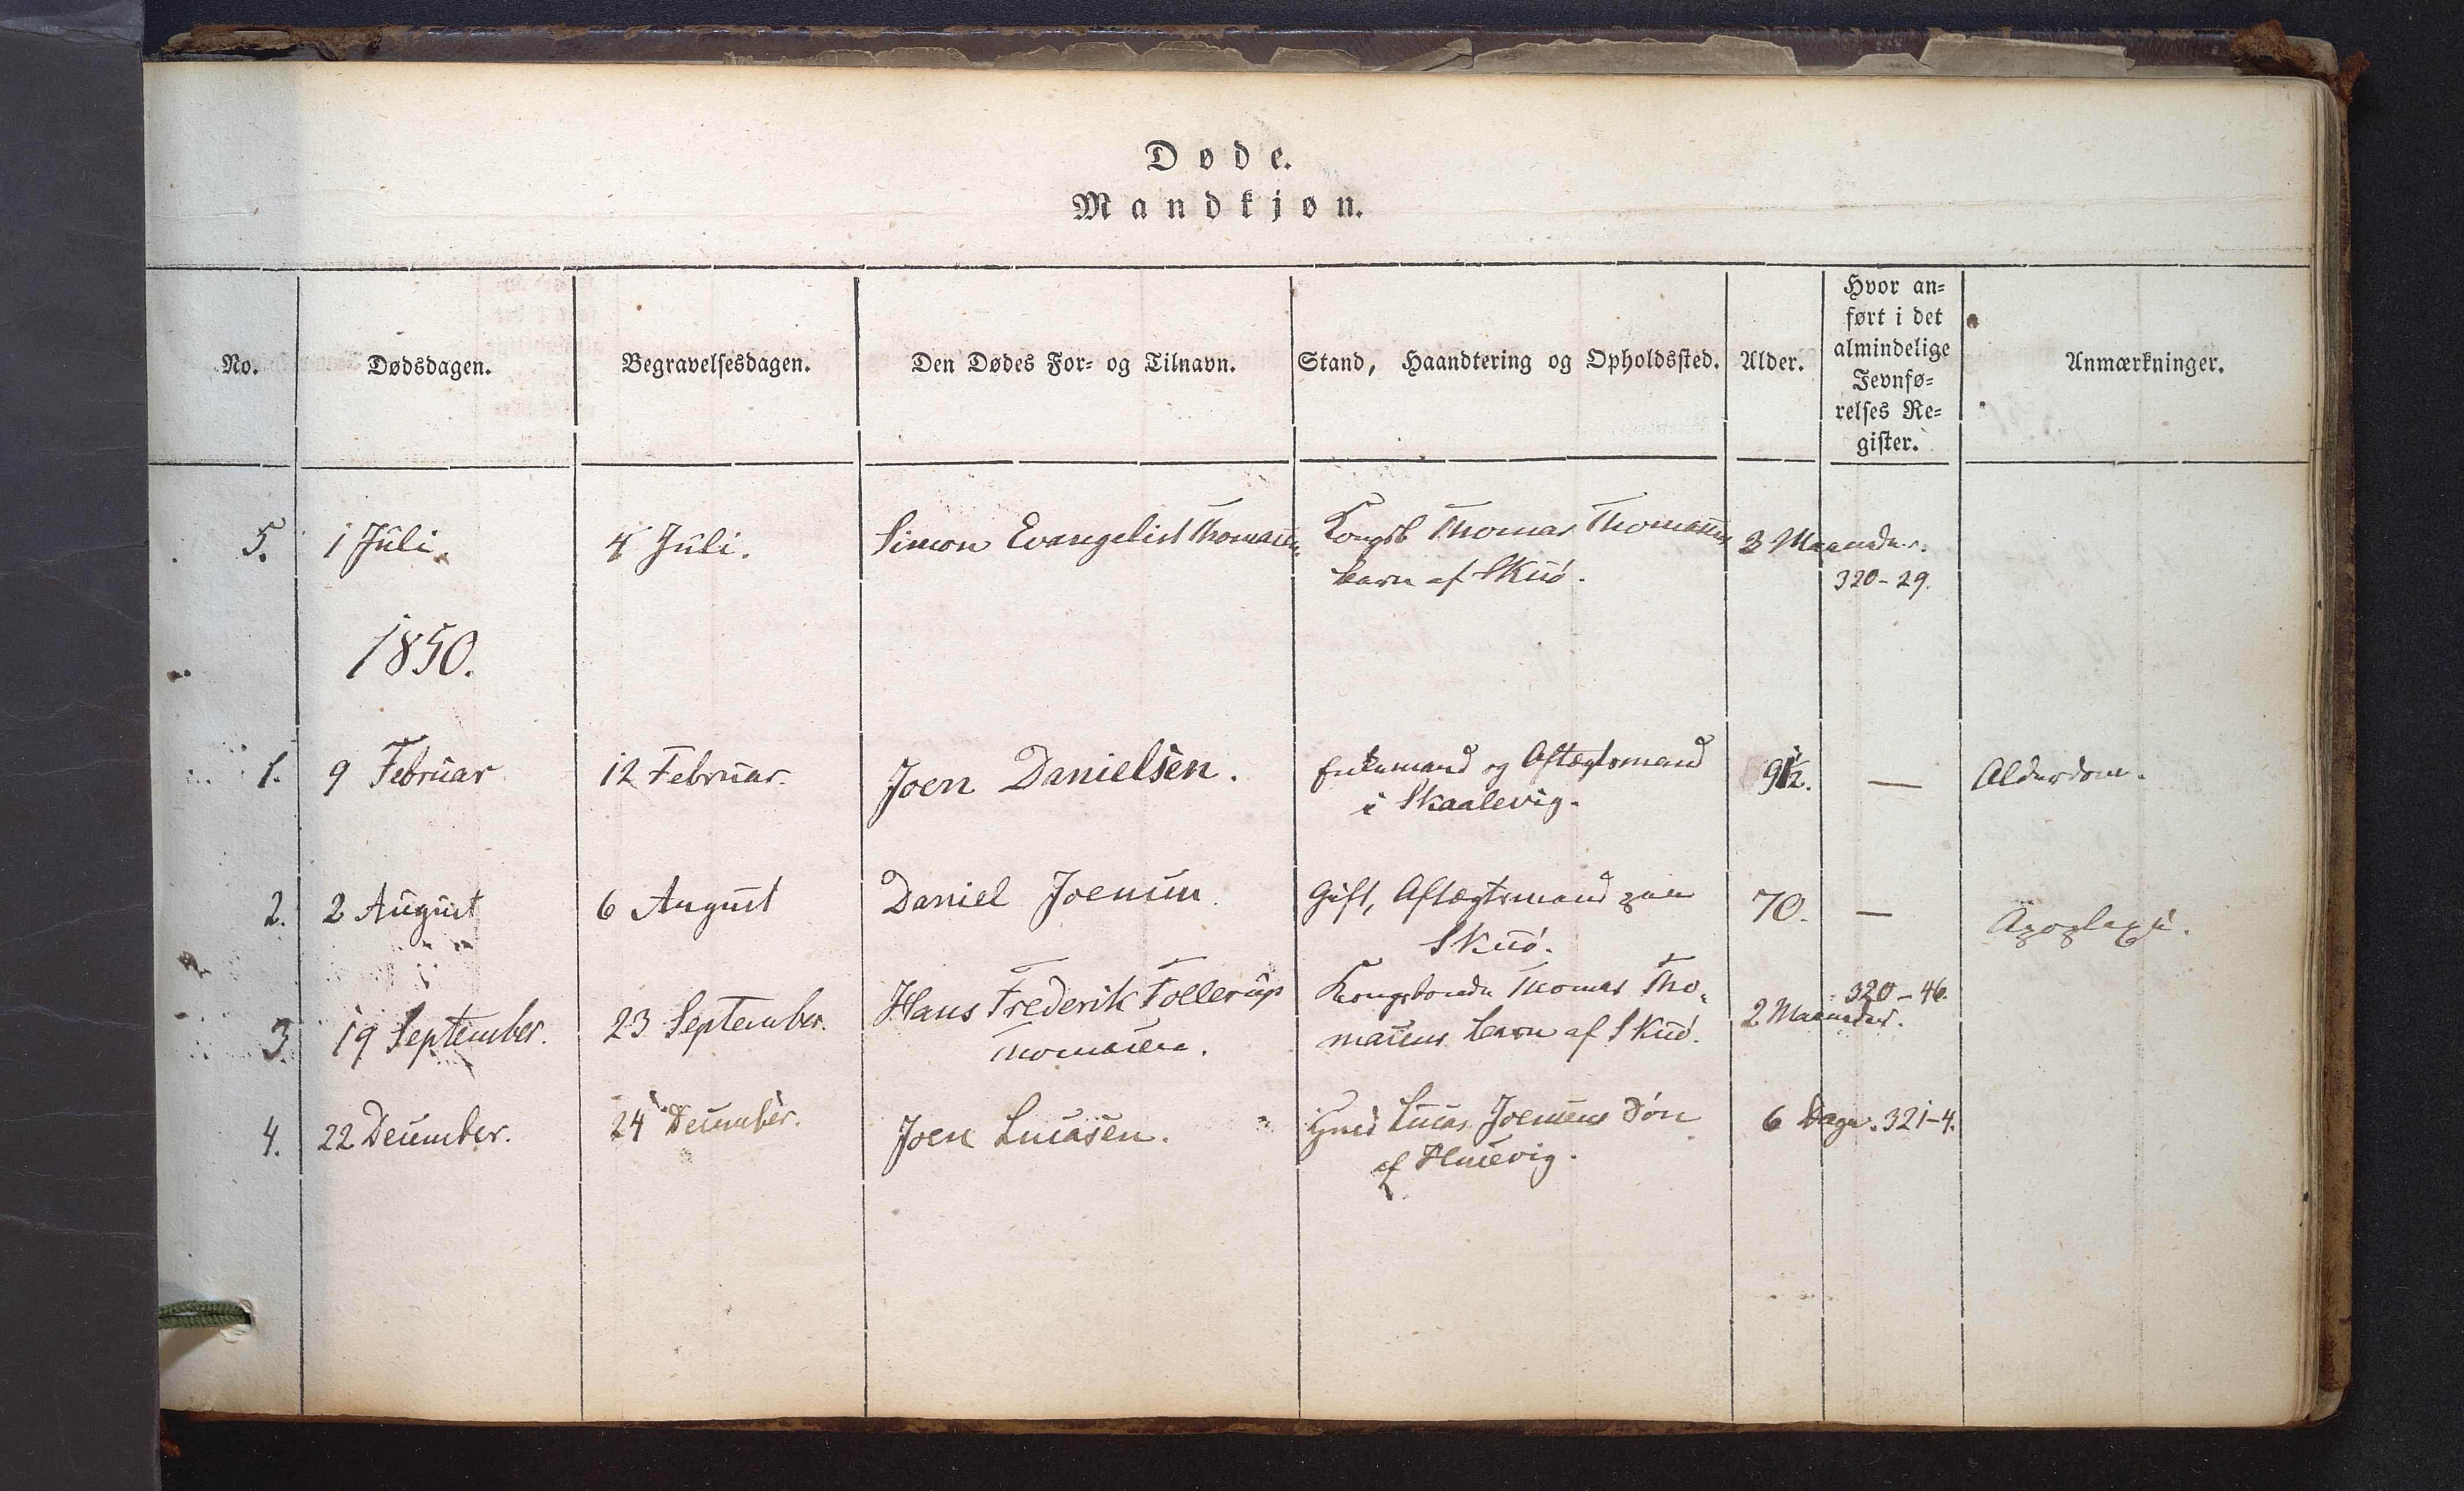 Døde.
Mandkjøn.
No.
Dødsdagen.
Begravelsesdagen.
Den Dødes For- og Tilnavn.
Stand, Haandtering og Opholdssted.
Alder.
Hvor an-
ført i det
almindelige
Jevnfø-
relses Re-
gister.
Anmærkninger.
5. 1 Juli. 4 Juli. Simon Evangelist Thomasen, Kongsb Thomas Thomasens 3 Maaneder.
barn af Skuø. 320-29.
1850.
1. 9 Februar 12 Februar. Joen Danielsen. Enkemand og Aftægtsmand — Alderdom.
i Skaalevig.
2. 2 August 6 August Daniel Joensen Gift, Aftægtsmand paa 70. — Apoplexi.
Skuø.
3. 19 September. 23 September. Hans Frederik Tollerup Kongsbonde Thomas Tho- 2 Maaneder. 320-46.
Thomasen. masens barn af Skuø.
4. 22 December. 24 December. Joen Lucasen. Lucas Joensens Søn 6 Dage. 321-4.
af Husevig.